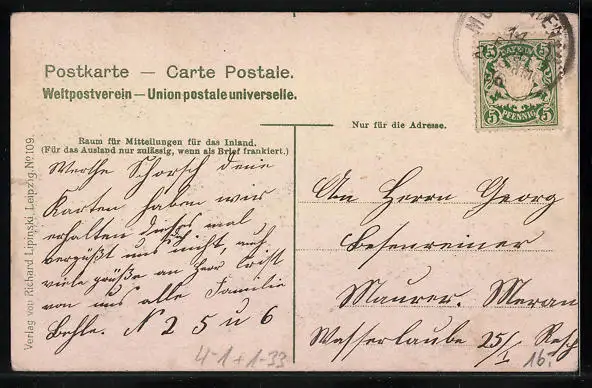 Postkarte — Carte Postale.
Weltpostverein — Union postale universelle.
Raum für Mitteilungen für das Inland.
(Für das Ausland nur zulässig, wenn als Brief frankiert.)
Nur für die Adresse.
BAYERN
5 5
5 PFENNIG 5
Werthe Schorsch deine
Karten haben wir
erhalten mal
vergüßt uns nicht, auch
viele grüße an Herr Crist
von uns alle Familie
Behle. N 2 5 u 6
An Herrn Georg
Besenreiner
Maurer. Meran
Wasserlaube 25/I
16.-
4-1+1-33
Verlag von Richard Lipinski, Leipzig. No. 109.